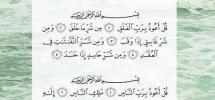 بِسْمِ اللَّهِ الرَّحْمَٰنِ الرَّحِيمِ
قُلْ أَعُوذُ بِرَبِّ الْفَلَقِ ۝١ مِن شَرِّ مَا خَلَقَ ۝٢ وَمِن
شَرِّ غَاسِقٍ إِذَا وَقَبَ ۝٣ وَمِن شَرِّ النَّفَّاثَاتِ فِي
الْعُقَدِ ۝٤ وَمِن شَرِّ حَاسِدٍ إِذَا حَسَدَ ۝٥
بِسْمِ اللَّهِ الرَّحْمَٰنِ الرَّحِيمِ
قُلْ أَعُوذُ بِرَبِّ النَّاسِ ۝١ مَلِكِ النَّاسِ ۝٢ إِلَٰهِ